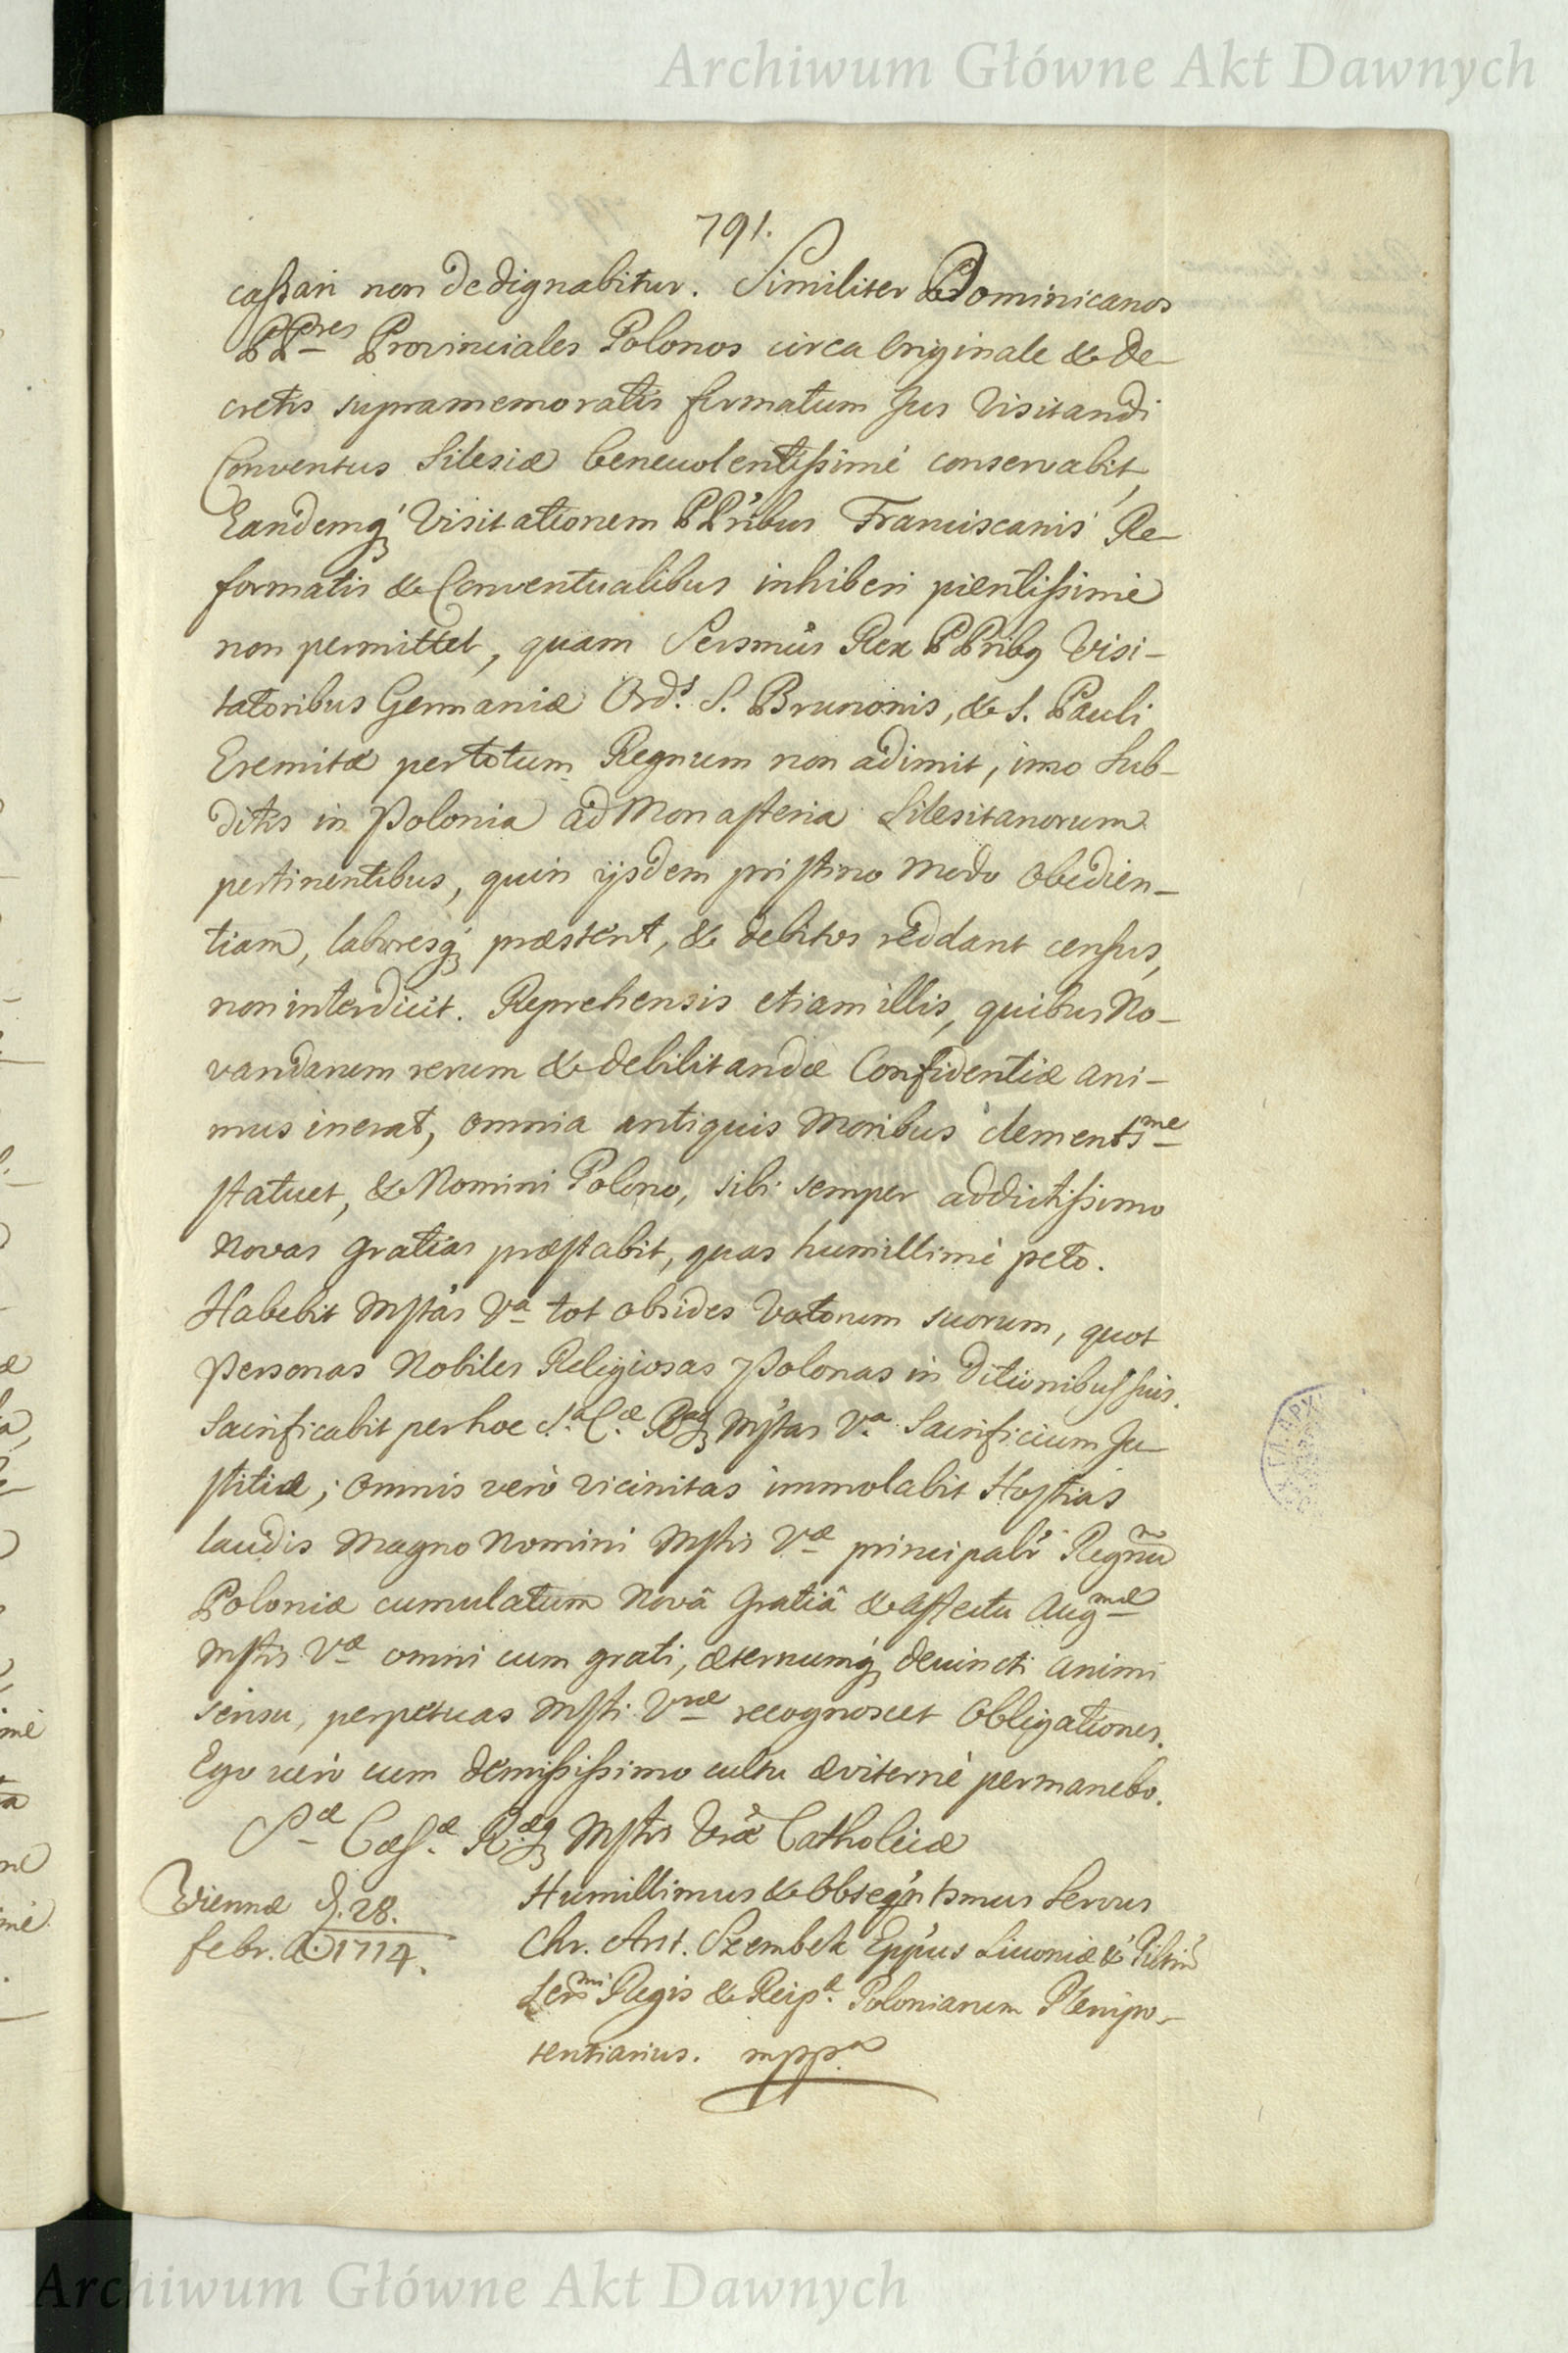 Archiwum Główne Akt Dawnych
791.
cassari non dedignabitur. Similiter & Dominicanos
PPres Provinciales Polonos circa Originale & De-
cretis supramemoratis firmatum Jus Visitandi
Conventus Silesiæ benevolentissimè conservabit,
Eandemq́ Visitationem PPribus Franciscanis Re-
formatis & Conventualibus inhiberi pientissimè
non permittet, quam Sersmus Rex PPribq Visi-
tatoribus Germaniæ Ords. S. Brunonis, & S. Pauli
Eremitæ per totum Regnum non adimit, imo Sub-
ditis in Polonia ad Monasteria Silesitanorum
pertinentibus, quin ijsdem pristino modo obedien-
tiam, laboresq́ præstent, & debitos reddant census,
non interdicit. Reprehensis etiam illis, quibus No-
vandarum rerum & debilitandæ Confidentiæ ani-
mus inerat, omnia antiquis Moribus clementsme
statuet, & Nomini Polono, sibi semper addictissimo
Novas gratias præstabit, quas humillimè peto.
Habebit Mstas Va tot obsides Votorum suorum, quot
Personas Nobiles Religiosas Polonas in Ditionibus suis.
Sacrificabit per hoc S.a C.æ R.aq Mstas V.a Sacrificium Ju-
stitiæ; omnis verò vicinitas immolabit Hostias
laudis Magno Nomini Mstis Væ principalr Regnum
Poloniæ cumulatum Novâ Gratiâ & affectu Augmæ
Mstis Væ omni cum grati, æternumq́ devincti animi
sensu, perpetuas Msti Vræ recognoscet Obligationes.
Ego verò cum demississimo cultu æviternè permanebo.
Sæ Cæs.æ R.æq Mstis Vræ Catholicæ
Viennæ d. 28.
febr. Ao. 1714.
Humillimus & Obseqntsmus Servus
Chr. Ant. Szembek Eppus Livoniæ & Piltin
Sermi Regis & Reip.æ Poloniarum Plenipo-
tentiarius. mppa
Archiwum Główne Akt Dawnych